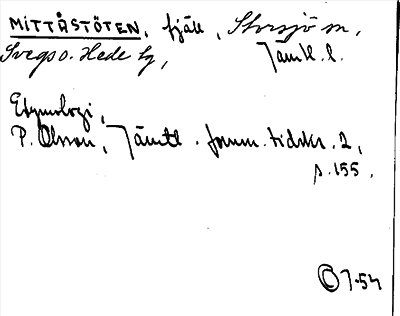 MITTÅSTÖTEN, fjäll, Storsjö sn,
Svegs o. Hede tg, Jämtl. l.
Etymologi,
P. Olsson, Jämtl. fornm. tidskr. 2,
s. 155.